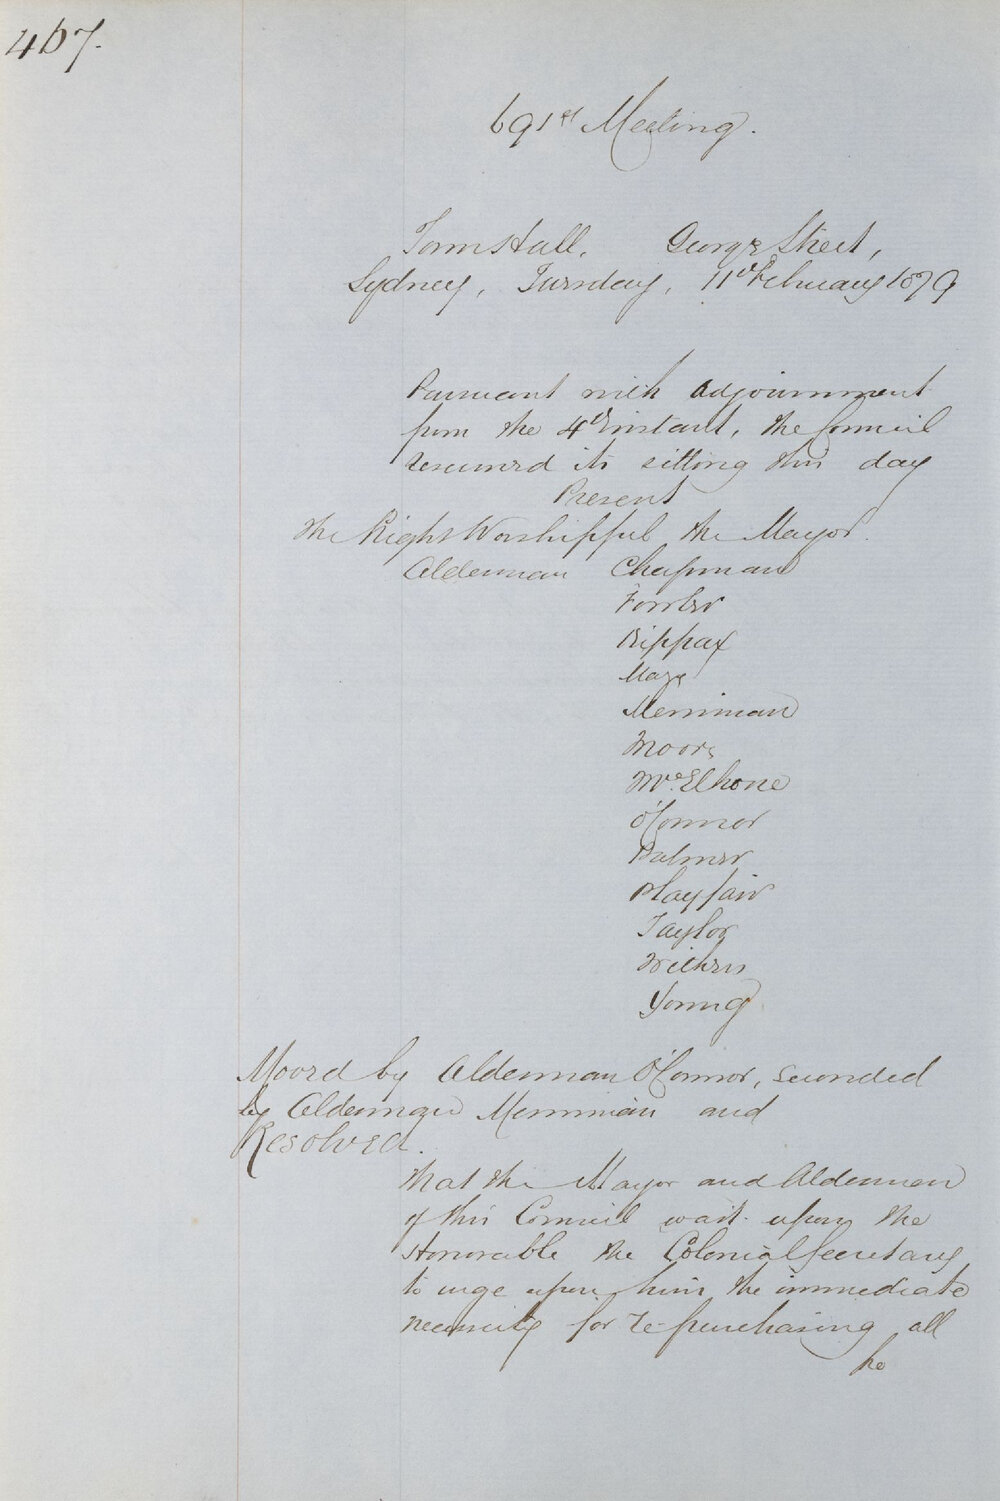 467.
691st Meeting.
Town Hall, George Street,
Sydney, Tuesday, 11th February 1879
Pursuant with adjournment
from the 4th instant, the Council
resumed its sitting this day
Present
The Right Worshipful the Mayor.
Alderman Chapman
Fowler
Hippax
Maze
Merriman
Moore
McElhone
O'Connor
Palmer
Playfair
Taylor
Withers
Young
Moved by Alderman O'Connor, seconded
by Alderman Merriman and
Resolved.
That the Mayor and Aldermen
of this Council wait upon the
Honorable the Colonial Secretary
to urge upon him the immediate
necessity for re-purchasing all